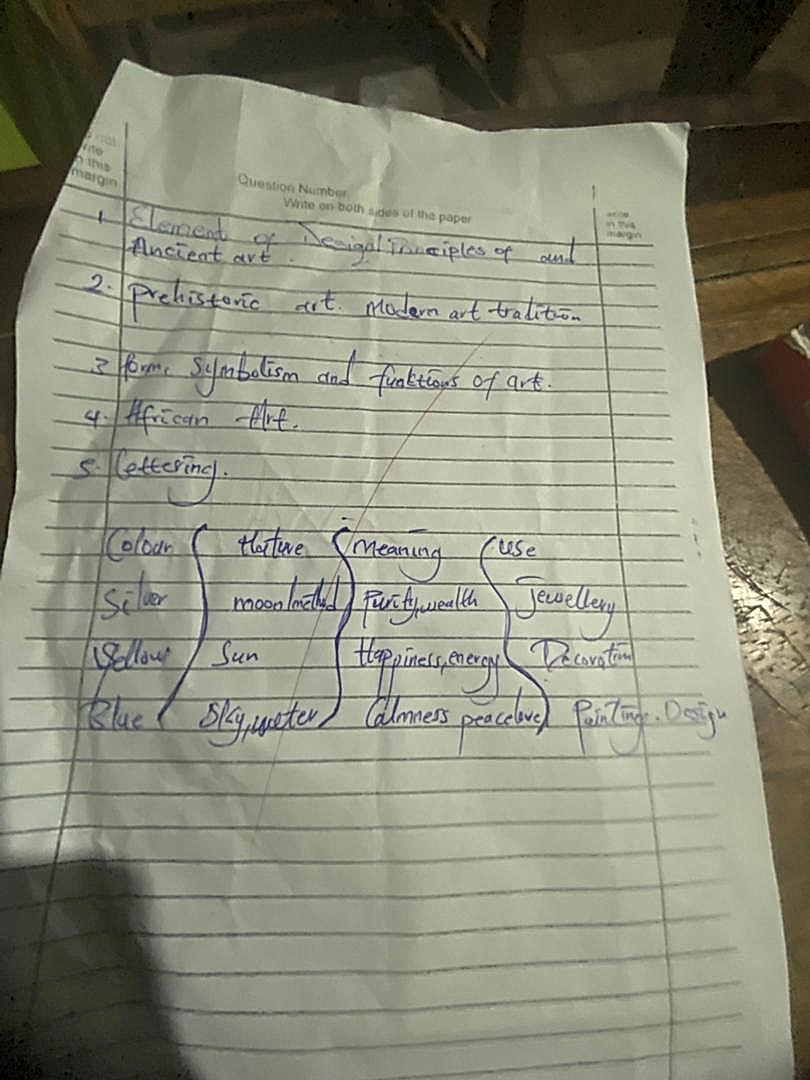 not
write
in this
margin
Question Number
Write on both sides of the paper
write
in this
margin
1 Element of Design Principles of and
Ancient art.
2. Prehistoric art. Modern art tradition
3 form, Symbolism and funktions of art.
4. African Art.
5. Lettering.
Colour Nature Meaning Use
Silver moon/methed Purity, wealth Jewellery
Yellow Sun Happiness, energy Decoration
Blue Sky, water Calmness peace love Paintings. Design